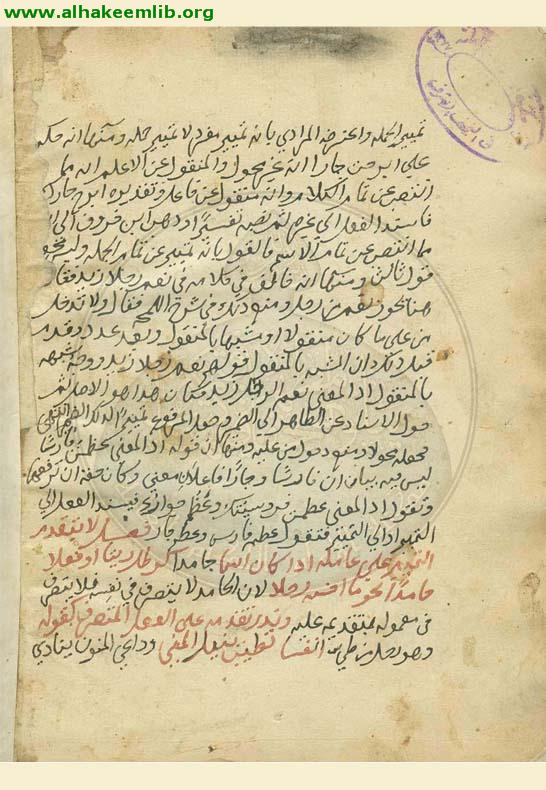 www.alhakeemlib.org
تمييز الجملة واعترضه المرادي بانه تمييز مفرد لا تمييز جملة ومنها انه حكم
على ابرحت جارا انه غير محول والمنقول عن الاعلم انه مما
انتصب عن تمام الكلام وانه منقول عن فاعل وتقديره ابرح جارك
فاسند الفعل الى غيره ثم نصب تفسيرا وذهب ابن خروف الى انه
مما انتصب عن تمام الاسم فالقول بانه تمييز عن تمام الجملة وليس محولا
قول ثالث ومنها انه خالف في كلامه في نعم رجلا زيد فقال
هنا يجوز نعم من رجل ومنع ذلك في شرح اللمحة فقال ولا تدخل
من على ما كان منقولا او مشبها بالمنقول وبعد عدد وقدم
قبل ذلك ان المشبه بالمنقول قولهم نعم رجلا زيد ووجه شبهه
بالمنقول اذ المعنى نعم الرجل زيد وكان هذا هو الاصل ثم
حول الاسناد عن الظاهر الى الضمير وجعل المرفوع تمييزا لذلك الضمير انتهى
فجعله محولا ومنع دخول من عليه ومنها ان قوله اذ المعنى عظمت فارسا
ليس فيه بيان ان فارسا وجارا فاعلان معنى وكان حقه ان يرفعهما
وتقول اذ المعنى عظمت فروسيتك وعظم جوارك فيسند الفعل الى
التمييز او الى التمييز فتقول عظم فارس وعظم جار فصل لا يتقدم
التمييز على عامله اذا كان اسما جامدا كرطل زيتا او فعلا
جامدا نحو ما احسنه رجلا لان الجامد لا يتصرف في نفسه فلا يتصرف
في معموله بتقديمه عليه وندر تقدمه على الفعل المتصرف كقوله
وهو رجل من طيئ انفسا تطيب بنيل المنى وداعي المنون ينادي